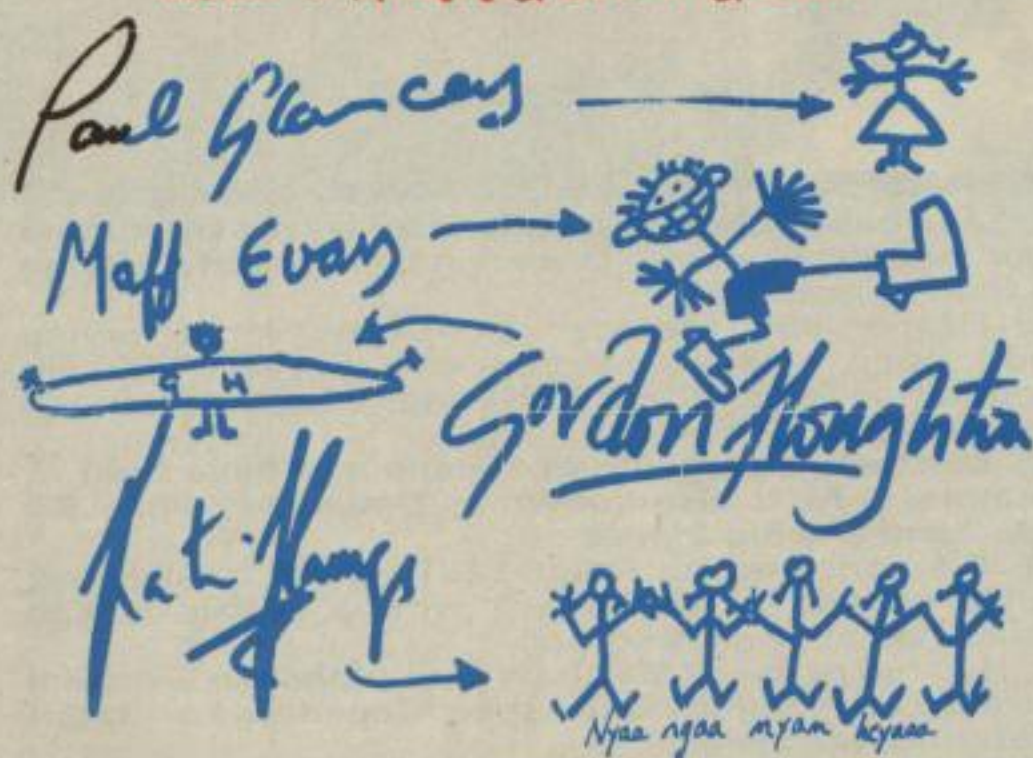 Paul Glancey
Maff Evans
G H
Gordon Houghton
Kati Hamza
Nyaa ngaa myam